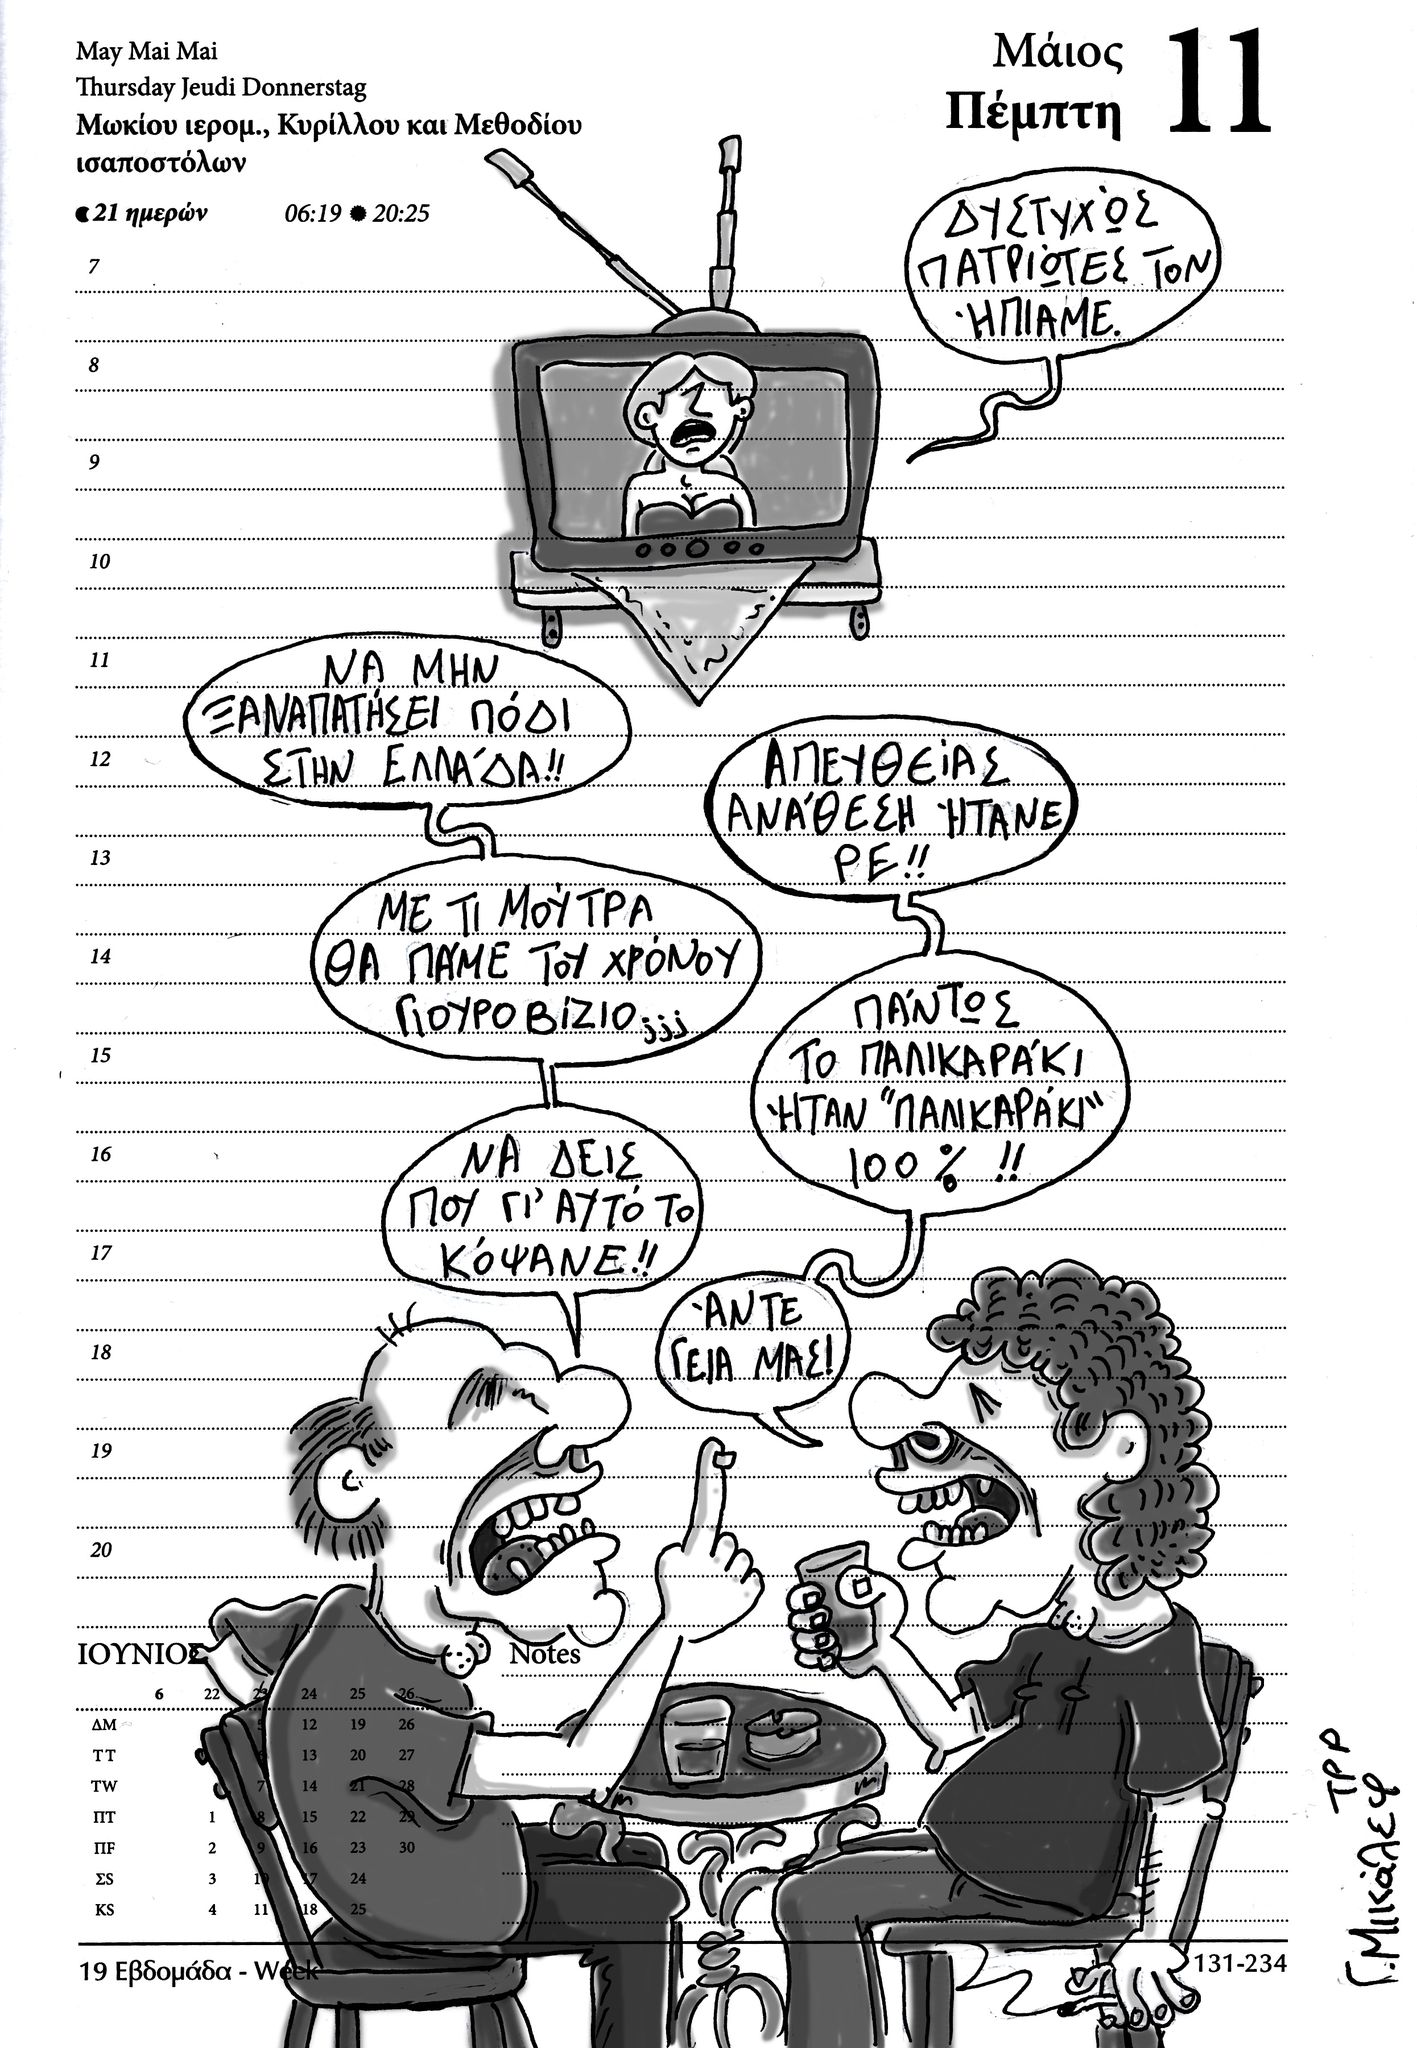 May Mai Mai
Thursday Jeudi Donnerstag
Μωκίου ιερομ., Κυρίλλου και Μεθοδίου
ισαποστόλων
21 ημερών 06:19 20:25
Μάιος
Πέμπτη
11
ΔΥΣΤΥΧΏΣ
ΠΑΤΡΙΏΤΕΣ ΤΟΝ
ΉΠΙΑΜΕ.
7
8
9
10
11
12
13
14
15
16
17
18
19
20
ΝΑ ΜΗΝ
ΞΑΝΑΠΑΤΉΣΕΙ ΠΌΔΙ
ΣΤΗΝ ΕΛΛΆΔΑ!!
ΑΠΕΥΘΕΊΑΣ
ΑΝΆΘΕΣΗ ΉΤΑΝΕ
ΡΕ!!
ΜΕ ΤΙ ΜΟΎΤΡΑ
ΘΑ ΠΆΜΕ ΤΟΥ ΧΡΌΝΟΥ
ΓΙΟΥΡΟΒΊΖΙΟ;;;
ΠΆΝΤΩΣ
ΤΟ ΠΑΛΙΚΑΡΆΚΙ
ΉΤΑΝ "ΠΑΛΙΚΑΡΆΚΙ"
100% !!
ΝΑ ΔΕΙΣ
ΠΟΥ ΓΙ' ΑΥΤΌ ΤΟ
ΚΌΨΑΝΕ!!
ΆΝΤΕ
ΓΕΙΑ ΜΑΣ!
ΙΟΥΝΙΟΣ
6 22 23 24 25 26
ΔΜ 5 12 19 26
ΤΤ 6 13 20 27
ΤW 7 14 21 28
ΠΤ 1 8 15 22 29
ΠF 2 9 16 23 30
ΣS 3 10 17 24
ΚS 4 11 18 25
Notes
19 Εβδομάδα - Week
131-234
Γ. Μικάλεφ
ΤΡΡ